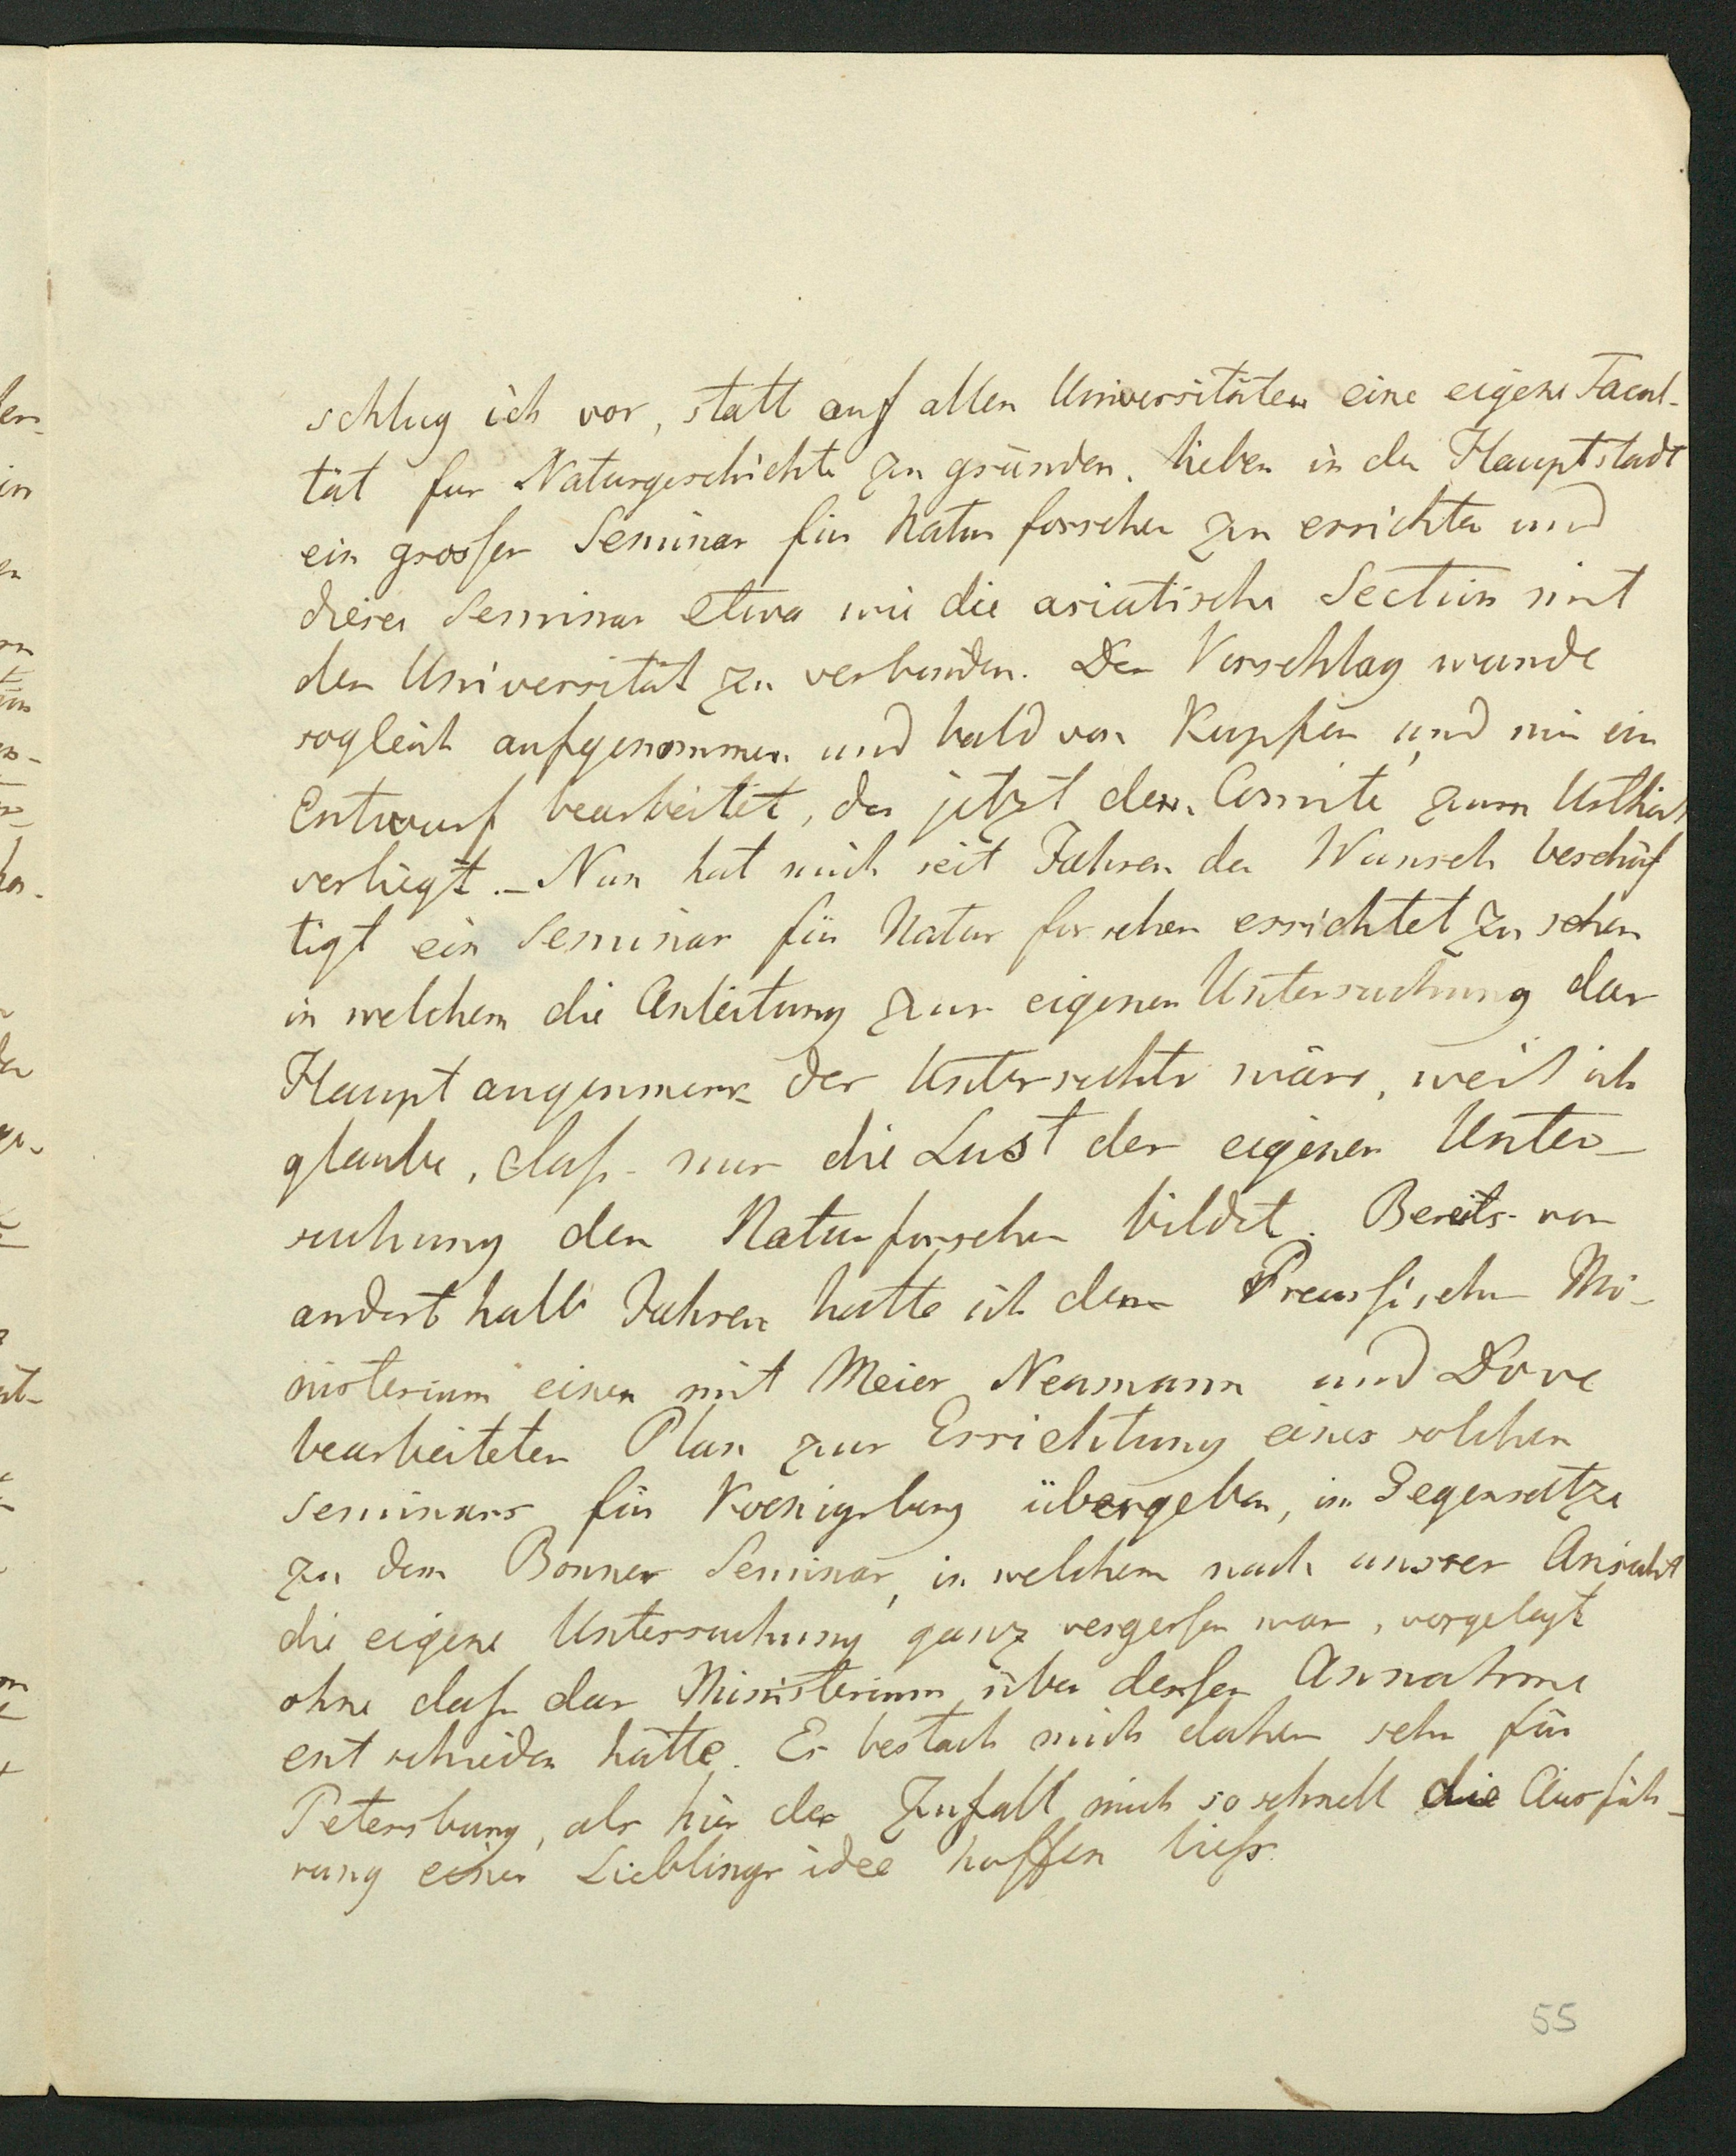 schlug ich vor, statt auf allen Universitäten eine eigene Facul-
tät für Naturgeschichte zu gründen, lieber in der Hauptstadt
ein grosses Seminar für Naturforscher zu errichten und
dieses Seminar etwa wie die asiatische Section mit
der Universität zu verbinden. Der Vorschlag wurde
sogleich aufgenommen und bald von Kupfer und mir ein
Entwurf bearbeitet, der jetzt dem Comité zum Urtheil
vorliegt. – Nun hat mich seit Jahren der Wunsch beschäf
tigt ein Seminar für Naturforscher errichtet zu sehen
in welchem die Anleitung zur eigenen Untersuchung das
Hauptaugenmerk des Unterrichts wäre, weil ich
glaube, dass nur die Lust der eigenen Unter-
suchung den Naturforscher bildet. Bereits vor
anderthalb Jahren hatte ich dem Preussischen Mi-
nisterium einen mit Meier Neumann und Dove
bearbeiteten Plan zur Errichtung eines solchen
Seminars für Koenigsberg übergeben, im Gegensatze
zu dem Bonner Seminar, in welchem nach unsrer Ansicht
die eigene Untersuchung ganz vergessen war, vorgelegt
ohne dass das Ministerium über dessen Annahme
entschieden hätte. Es bestach mich daher sehr für
Petersburg, als hier der Zufall mich so schnell die Ausfüh-
rung einer Lieblingsidee hoffen liess.
55